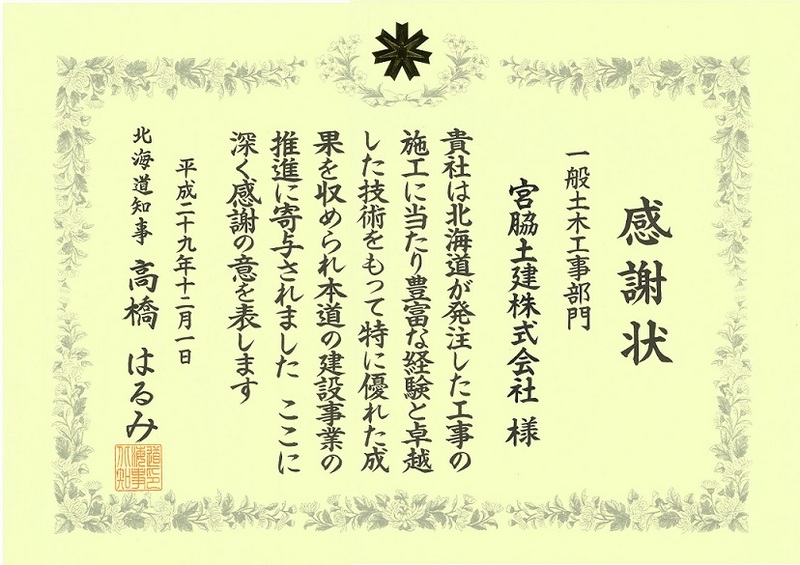 感謝状
一般土木工事部門
宮脇土建株式会社 様
貴社は北海道が発注した工事の
施工に当たり豊富な経験と卓越
した技術をもって特に優れた成
果を収められ本道の建設事業の
推進に寄与されました ここに
深く感謝の意を表します
平成二十九年十二月一日
北海道知事 高橋 はるみ